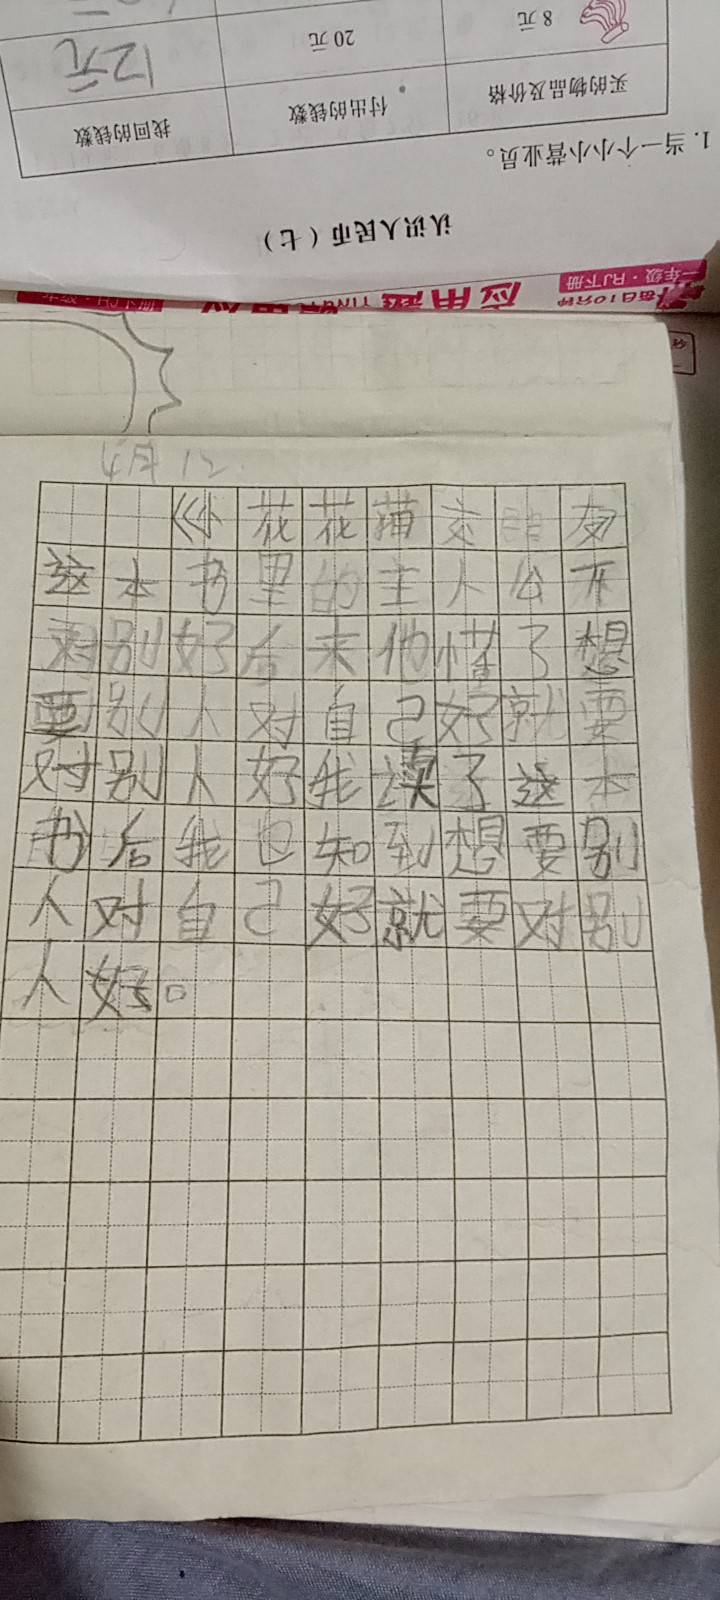 8元
20元
12元
买的物品及价格
付出的钱数
找回的钱数
1. 当一个小小营业员。
认识人民币（七）
每日10分钟
应用题
一年级·RJ下册
4月12
《小花花猫交朋友
这本书里的主人公不
对别好后来他懂了想
要别人对自己好就要
对别人好我读了这本
书后我也知到想要别
人对自己好就要对别
人好。